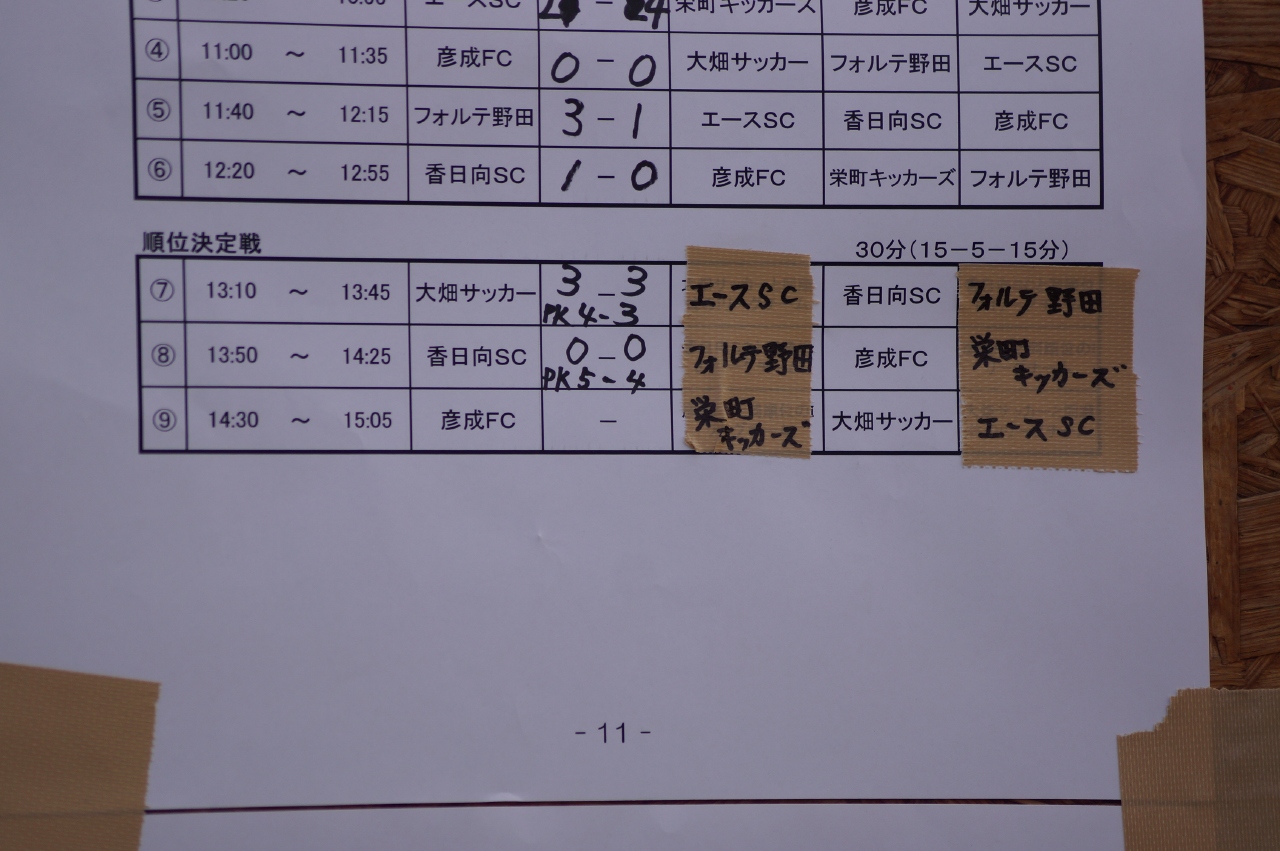 エースSC - 24 栄町キッカーズ 彦成FC 大畑サッカー
④ 11:00 ～ 11:35 彦成FC 0 - 0 大畑サッカー フォルテ野田 エースSC
⑤ 11:40 ～ 12:15 フォルテ野田 3 - 1 エースSC 香日向SC 彦成FC
⑥ 12:20 ～ 12:55 香日向SC 1 - 0 彦成FC 栄町キッカーズ フォルテ野田
順位決定戦 30分（15－5－15分）
⑦ 13:10 ～ 13:45 大畑サッカー 3 - 3 エースSC 香日向SC フォルテ野田
PK 4-3
⑧ 13:50 ～ 14:25 香日向SC 0 - 0 フォルテ野田 彦成FC 栄町キッカーズ
PK 5-4
⑨ 14:30 ～ 15:05 彦成FC - 栄町キッカーズ 大畑サッカー エースSC
- 11 -